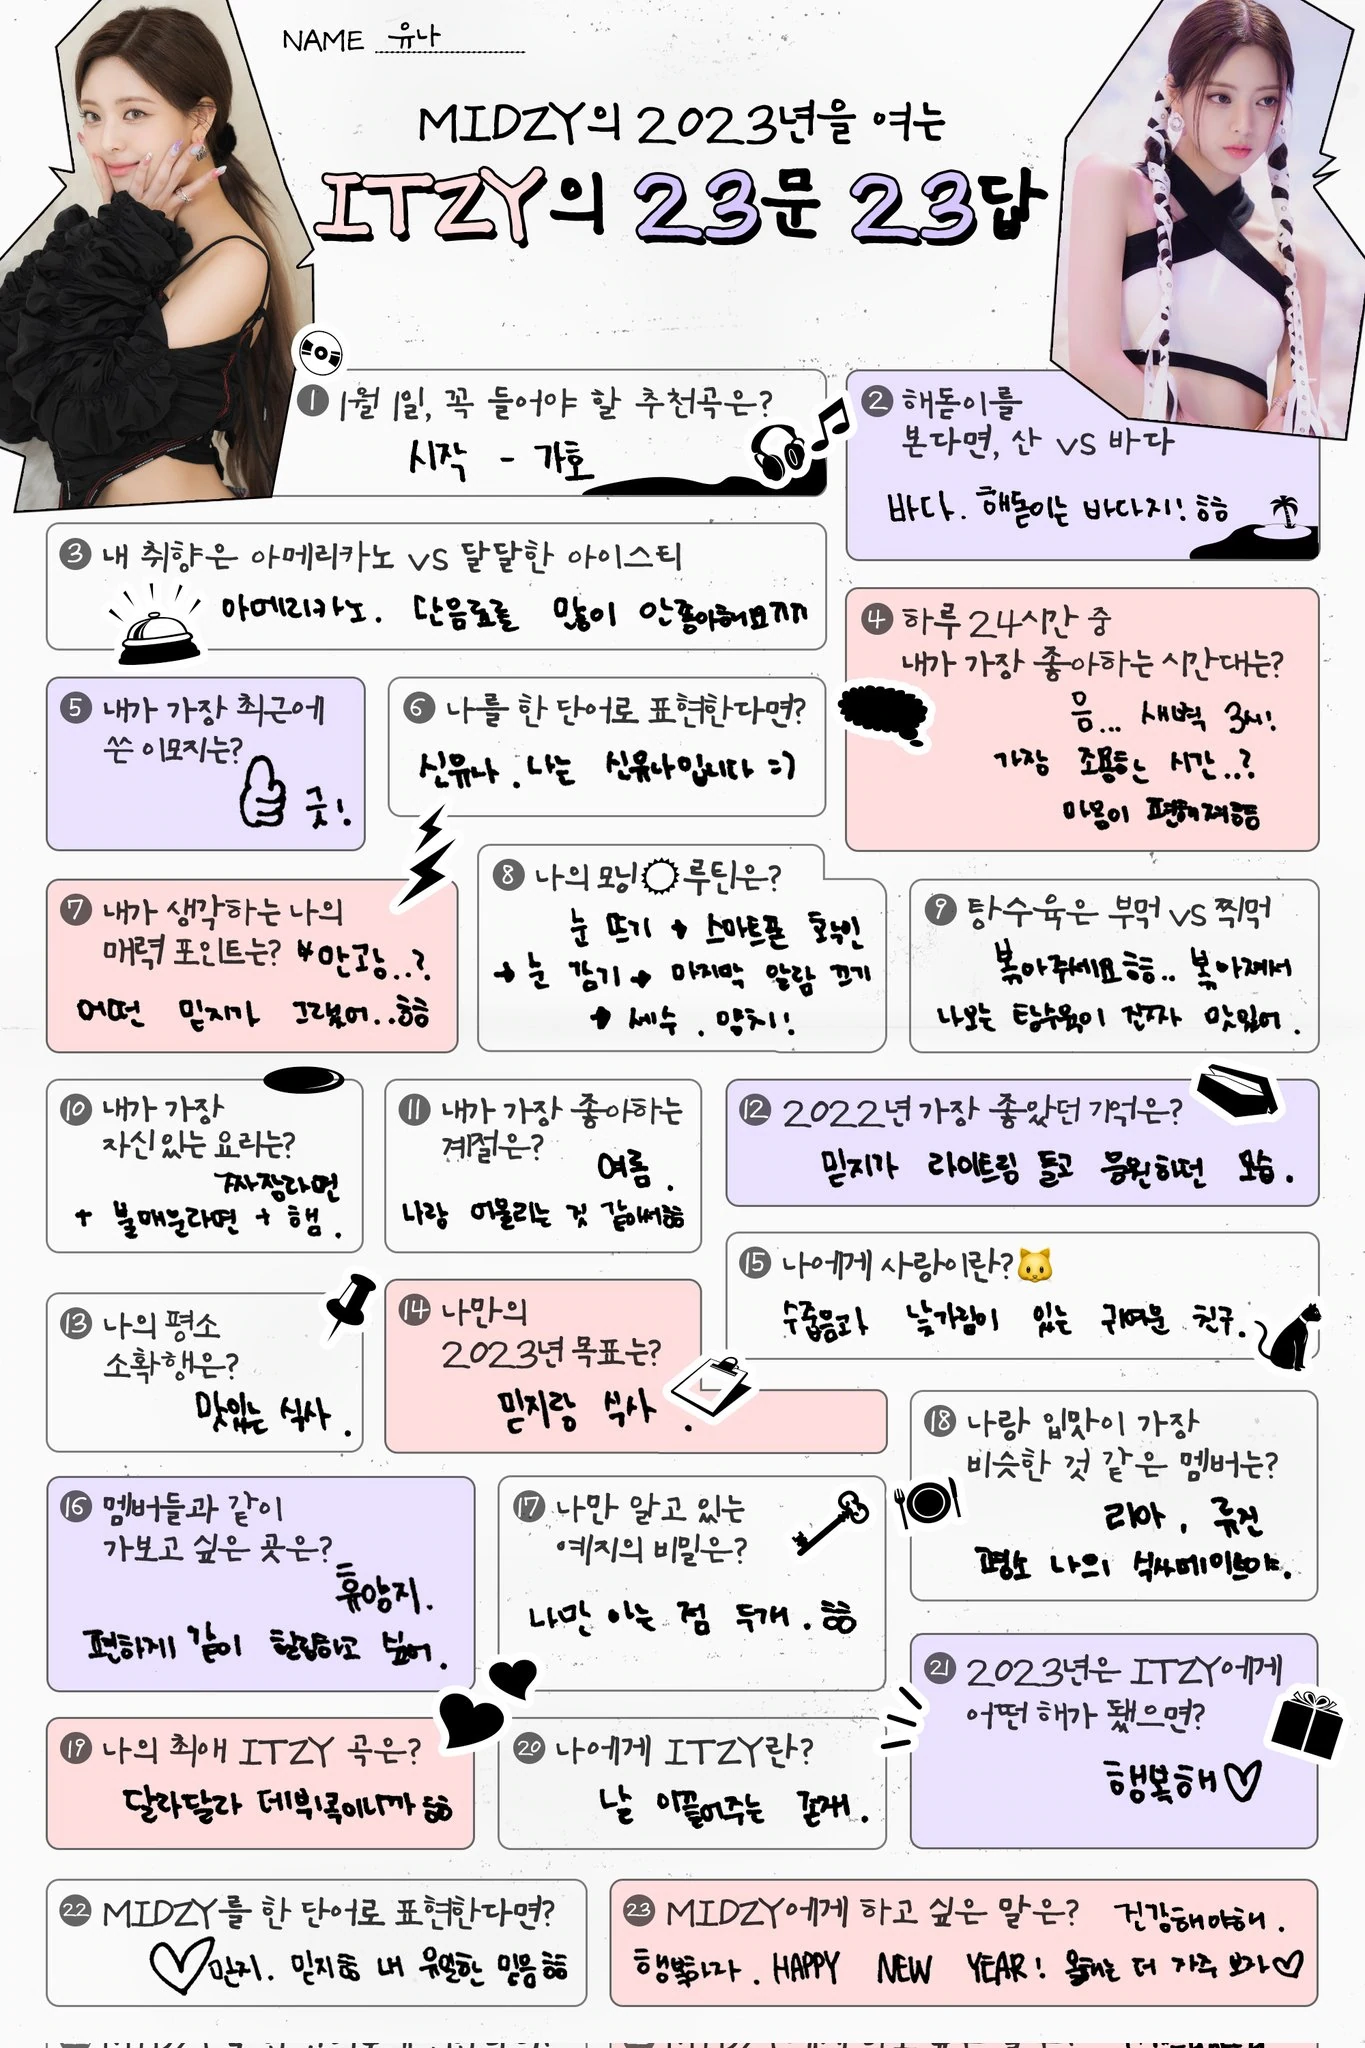 NAME 유나
MIDZY의 2023년을 여는
ITZY의 23문 23답
1 1월 1일, 꼭 들어야 할 추천곡은?
시작 - 가호
2 해돋이를
본다면, 산 vs 바다
바다. 해돋이는 바다지! ㅎㅎ
3 내 취향은 아메리카노 vs 달달한 아이스티
아메리카노. 단음료를 많이 안좋아해요ㅠㅠ
4 하루 24시간 중
내가 가장 좋아하는 시간대는?
음... 새벽 3시!
가장 조용한 시간..?
마음이 편해져ㅎㅎ
5 내가 가장 최근에
쓴 이모지는?
굿!
6 나를 한 단어로 표현한다면?
신유나. 나는 신유나입니다 =)
7 내가 생각하는 나의
매력 포인트는? 만능..?
어떤 믿지가 그랬어..ㅎㅎ
8 나의 모닝 루틴은?
눈 뜨기 → 스마트폰 확인
→ 눈 감기 → 마지막 알람 끄기
→ 세수. 양치!
9 탕수육은 부먹 vs 찍먹
볶아주세요ㅎㅎ.. 볶아져서
나오는 탕수육이 진짜 맛있어.
10 내가 가장
자신있는 요리는?
짜장라면
+ 불매운라면 + 햄.
11 내가 가장 좋아하는
계절은?
여름.
나랑 어울리는 것 같아서ㅎㅎ
12 2022년 가장 좋았던 기억은?
믿지가 라이트링 들고 응원하던 모습.
15 나에게 사랑이란?🐱
수줍음과 낯가림이 있는 귀여운 친구.
13 나의 평소
소확행은?
맛있는 식사.
14 나만의
2023년 목표는?
믿지랑 식사.
18 나랑 입맛이 가장
비슷한 것 같은 멤버는?
리아, 류진
평소 나의 식사메이트야.
16 멤버들과 같이
가보고 싶은 곳은?
휴양지.
편하게 같이 힐링하고 싶어.
17 나만 알고 있는
예지의 비밀은?
나만 아는 점 두개. ㅎㅎ
21 2023년은 ITZY에게
어떤 해가 됐으면?
행복해♡
19 나의 최애 ITZY 곡은?
달라달라 데뷔곡이니까 ㅎㅎ
20 나에게 ITZY란?
날 이끌어주는 존재.
22 MIDZY를 한 단어로 표현한다면?
♡믿지. 믿지ㅎㅎ 내 유일한 믿음ㅎㅎ
23 MIDZY에게 하고 싶은 말은? 건강해야해.
행복하자. HAPPY NEW YEAR! 올해는 더 자주 보자♡